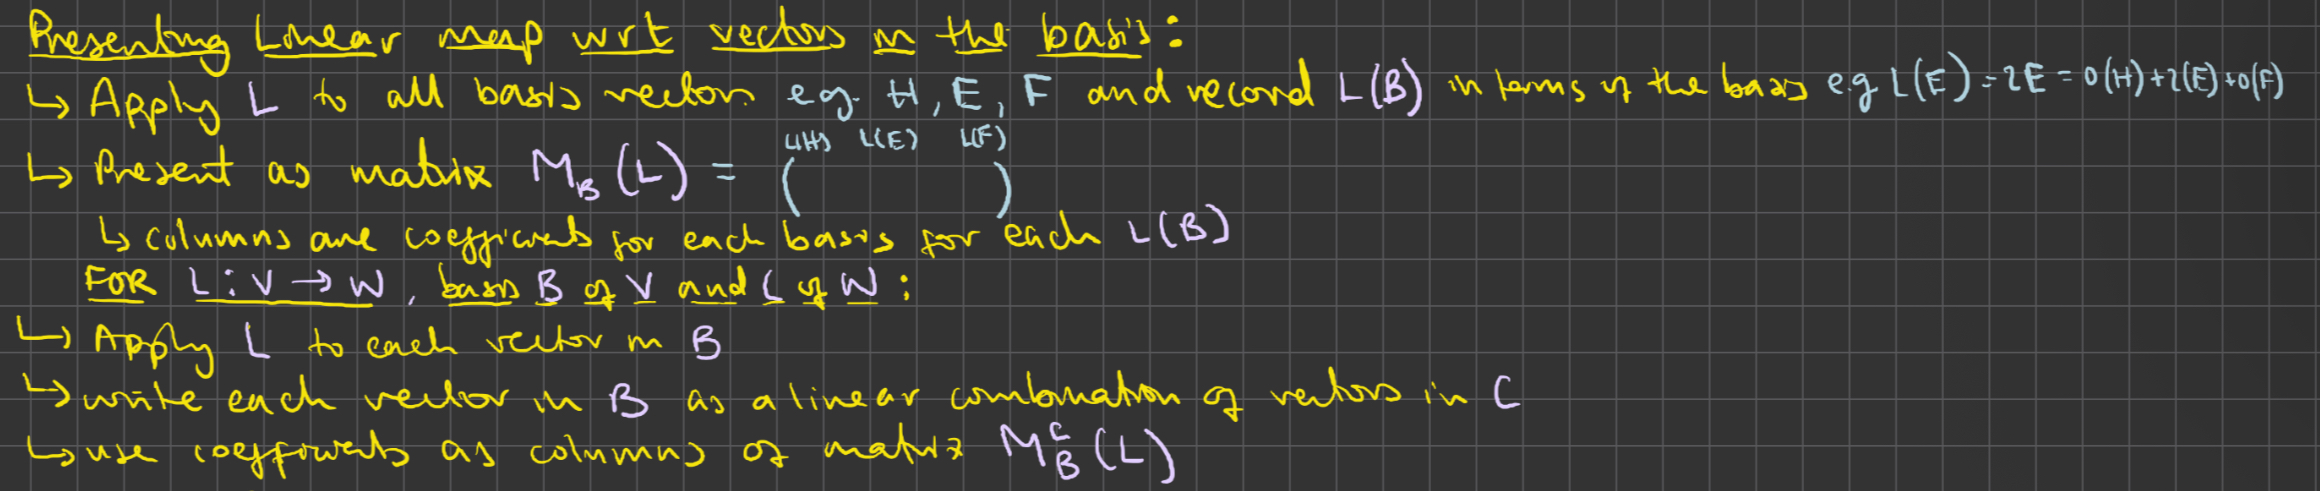 Presenting Linear map wrt vectors in the basis:
↳ Apply L to all basis vectors e.g. H, E, F and record L(B) in terms of the basis e.g L(E) = 2E = 0(H)+2(E)+0(F)
L(H) L(E) L(F)
↳ Present as matrix M_B(L) = ( )
↳ columns are coefficients for each basis for each L(B)
FOR L: V → W, basis B of V and C of W:
↳ Apply L to each vector in B
↳ write each vector in B as a linear combination of vectors in C
↳ use coefficients as columns of matrix M_B^C(L)